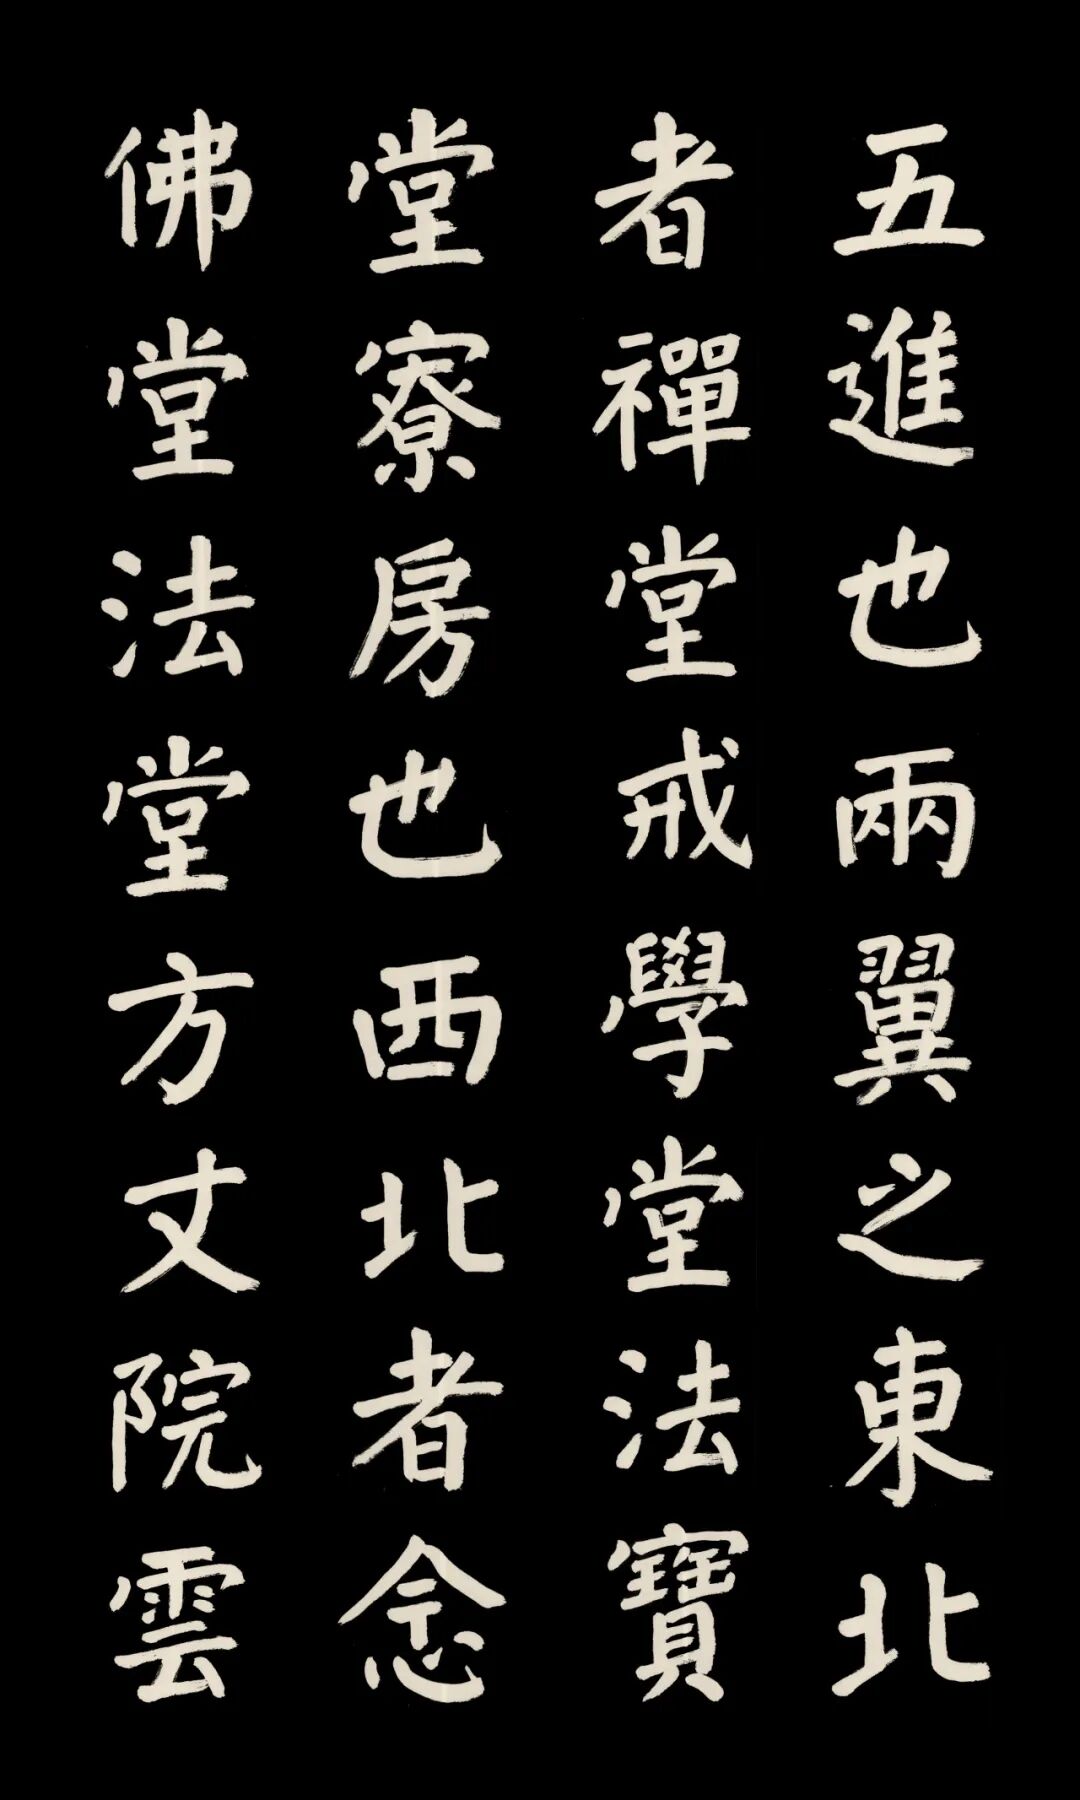 五進也兩翼之東北
者禪堂戒學堂法寶
堂寮房也西北者念
佛堂法堂方丈院雲